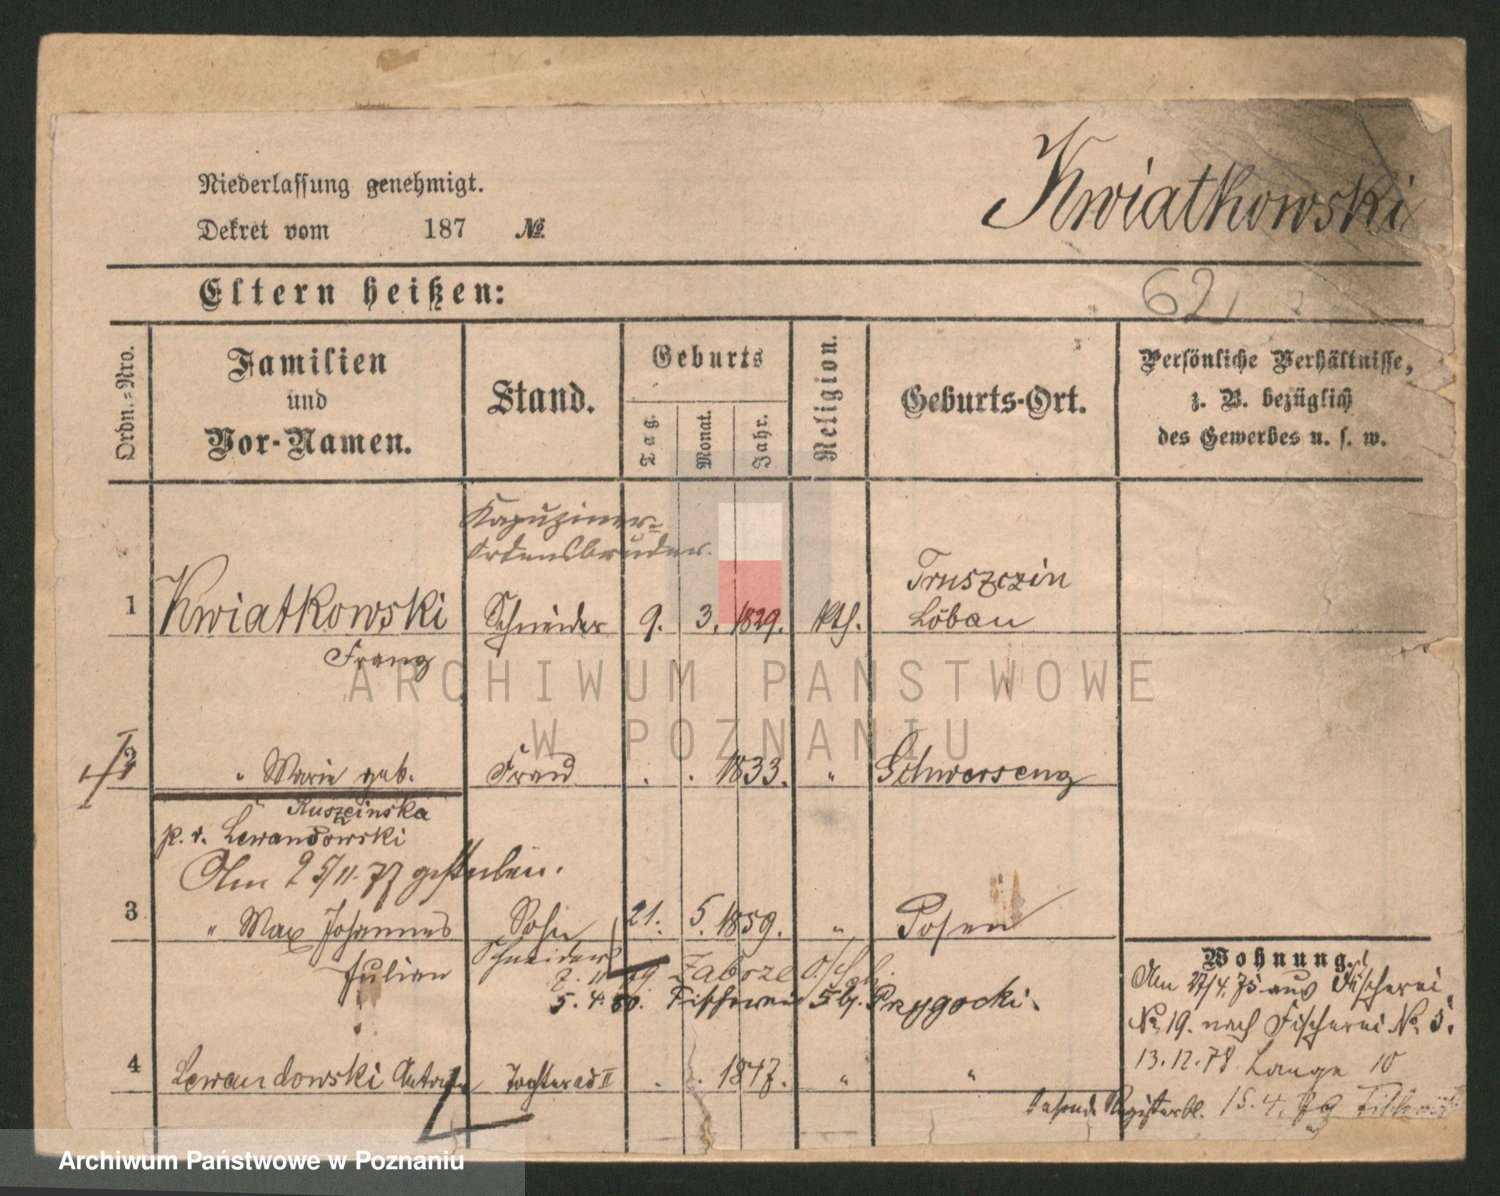 Kwiatkowski
Niederlassung genehmigt.
Dekret vom 187 №
Eltern heißen:
62
Ordn.-Nro.
Familien
und
Vor-Namen.
Stand.
Geburts
Tag
Monat.
Jahr.
Religion.
Geburts-Ort.
Persönliche Verhältnisse,
z. B. bezüglich
des Gewerbes u. s. w.
Kapuziner-
Ordensbruder.
1 Kwiatkowski Schneider 9. 3. 1829. kth. Truszczin
Löbau
Franz
2 " Marie geb. Frau . . 1833. " Schwersenz
Ruszcinska
p. v. Lewandowski
Am 25/11. 77 gestorben.
3 " Max Johannes Sohn 21. 5. 1859. " Posen
Julian Schneider
Zabrze O/Schl.
5. 4. 80. Fischerei 5 b/ Przygocki.
4 Lewandowski Tochter ad II . . 1847. " "
Wohnung.
Am 27/4. 75 aus Fischerei
№ 19. nach Fischerei № 5.
13. 12. 78. Lange 10
Registerbl. 15. 4. 79
ARCHIWUM PAŃSTWOWE
W POZNANIU
Archiwum Państwowe w Poznaniu